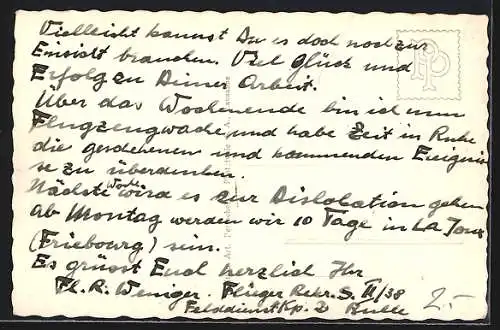 Vielleicht kannst Du es doch noch zur
Einsicht brauchen. Viel Glück und
Erfolg zu Deiner Arbeit.
Über das Wochenende bin ich nun
Flugzeugwache, und habe Zeit in Ruhe
die geschehenen und kommenden Ereignis
se zu überdenken.
Nächste Woche wird es zur Dislokation gehen
ab Montag werden wir 10 Tage in La Tour
(Friebourg) sein.
Es grüsst Euch herzlich Ihr
Fl. R. Weniger. Flieger Rekr. S. II/38
Felddienst Kp. 2 Bulle
2.-